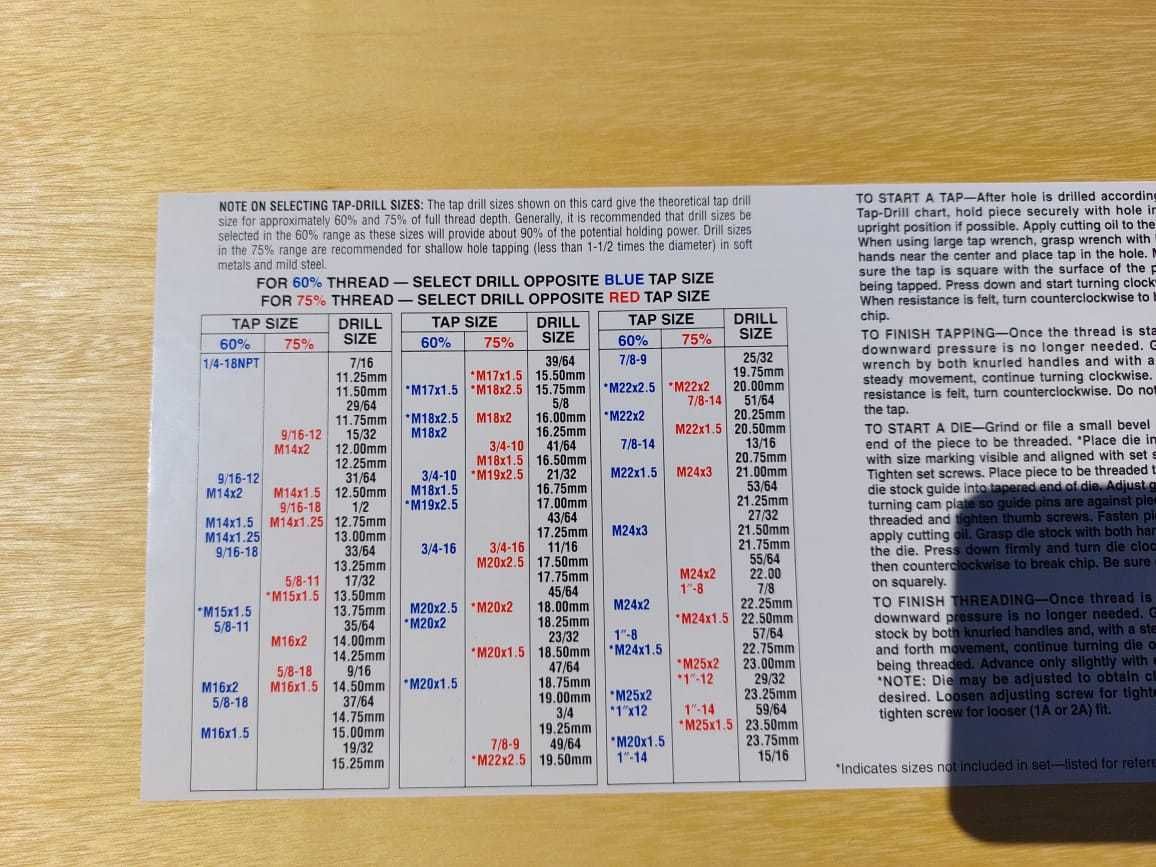 NOTE ON SELECTING TAP-DRILL SIZES: The tap drill sizes shown on this card give the theoretical tap drill
size for approximately 60% and 75% of full thread depth. Generally, it is recommended that drill sizes be
selected in the 60% range as these sizes will provide about 90% of the potential holding power. Drill sizes
in the 75% range are recommended for shallow hole tapping (less than 1-1/2 times the diameter) in soft
metals and mild steel.
FOR 60% THREAD — SELECT DRILL OPPOSITE BLUE TAP SIZE
FOR 75% THREAD — SELECT DRILL OPPOSITE RED TAP SIZE
TAP SIZE DRILL SIZE
60% 75%
1/4-18NPT 7/16
11.25mm
11.50mm
29/64
11.75mm
9/16-12 15/32
M14x2 12.00mm
12.25mm
9/16-12 31/64
M14x2 M14x1.5 12.50mm
9/16-18 1/2
M14x1.5 M14x1.25 12.75mm
M14x1.25 13.00mm
9/16-18 33/64
13.25mm
5/8-11 17/32
*M15x1.5 13.50mm
*M15x1.5 13.75mm
5/8-11 35/64
M16x2 14.00mm
14.25mm
5/8-18 9/16
M16x2 M16x1.5 14.50mm
5/8-18 37/64
14.75mm
M16x1.5 15.00mm
19/32
15.25mm
TAP SIZE DRILL SIZE
60% 75%
39/64
*M17x1.5 15.50mm
*M17x1.5 *M18x2.5 15.75mm
5/8
*M18x2.5 M18x2 16.00mm
M18x2 16.25mm
3/4-10 41/64
M18x1.5 16.50mm
3/4-10 *M19x2.5 21/32
M18x1.5 16.75mm
*M19x2.5 17.00mm
43/64
17.25mm
3/4-16 3/4-16 11/16
M20x2.5 17.50mm
17.75mm
45/64
M20x2.5 *M20x2 18.00mm
*M20x2 18.25mm
23/32
*M20x1.5 18.50mm
47/64
*M20x1.5 18.75mm
19.00mm
3/4
19.25mm
7/8-9 49/64
*M22x2.5 19.50mm
TAP SIZE DRILL SIZE
60% 75%
7/8-9 25/32
19.75mm
*M22x2.5 *M22x2 20.00mm
7/8-14 51/64
*M22x2 20.25mm
M22x1.5 20.50mm
7/8-14 13/16
20.75mm
M22x1.5 M24x3 21.00mm
53/64
21.25mm
27/32
M24x3 21.50mm
21.75mm
55/64
M24x2 22.00
1"-8 7/8
M24x2 22.25mm
*M24x1.5 22.50mm
1"-8 57/64
*M24x1.5 22.75mm
*M25x2 23.00mm
*1"-12 29/32
*M25x2 23.25mm
*1"x12 1"-14 59/64
*M25x1.5 23.50mm
*M20x1.5 23.75mm
1"-14 15/16
TO START A TAP—After hole is drilled according
Tap-Drill chart, hold piece securely with hole in
upright position if possible. Apply cutting oil to the
When using large tap wrench, grasp wrench with
hands near the center and place tap in the hole.
sure the tap is square with the surface of the
being tapped. Press down and start turning
When resistance is felt, turn counterclockwise to
chip.
TO FINISH TAPPING—Once the thread is
downward pressure is no longer needed.
wrench by both knurled handles and with a
steady movement, continue turning clockwise.
resistance is felt, turn counterclockwise. Do
the tap.
TO START A DIE—Grind or file a small bevel
end of the piece to be threaded. *Place die in
with size marking visible and aligned with set
Tighten set screws. Place piece to be threaded
die stock guide into tapered end of die. Adjust
turning cam plate so guide pins are against
threaded and tighten thumb screws. Fasten
apply cutting oil. Grasp die stock with both
the die. Press down firmly and turn die
then counterclockwise to break chip. Be sure
on squarely.
TO FINISH THREADING—Once thread is
downward pressure is no longer needed.
stock by both knurled handles and, with a
and forth movement, continue turning die
being threaded. Advance only slightly with
*NOTE: Die may be adjusted to obtain
desired. Loosen adjusting screw for
tighten screw for looser (1A or 2A) fit.
*Indicates sizes not included in set—listed for